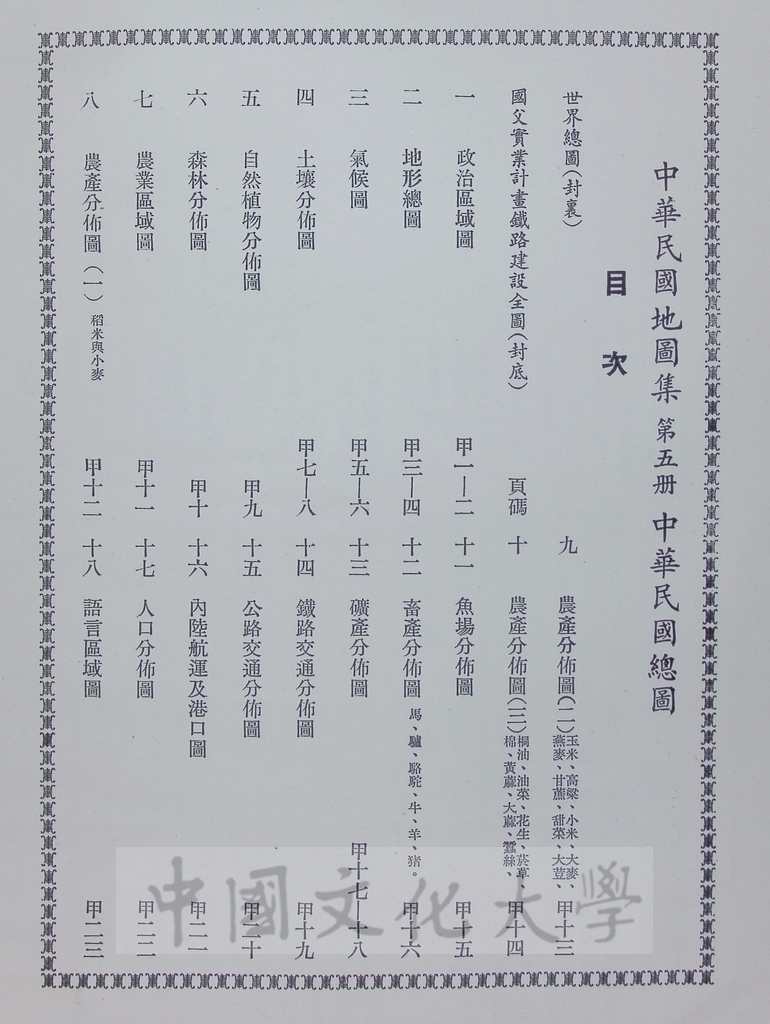 中華民國地圖集 第五册 中華民國總圖
目次
世界總圖(封裏)
國父實業計畫鐵路建設全圖(封底) 頁碼
一 政治區域圖 甲一—二
二 地形總圖 甲三—四
三 氣候圖 甲五—六
四 土壤分佈圖 甲七—八
五 自然植物分佈圖 甲九
六 森林分佈圖 甲十
七 農業區域圖 甲十一
八 農產分佈圖(一) 稻米與小麥 甲十二
九 農產分佈圖(二) 玉米、高粱、小米、大麥、燕麥、甘蔗、甜菜、大荳、 甲十三
十 農產分佈圖(三) 桐油、油菜、花生、菸草、棉、黃蔴、大蔴、蠶絲、 甲十四
十一 魚場分佈圖 甲十五
十二 畜產分佈圖 馬、驢、駱駝、牛、羊、猪。 甲十六
十三 礦產分佈圖 甲十七—十八
十四 鐵路交通分佈圖 甲十九
十五 公路交通分佈圖 甲二十
十六 內陸航運及港口圖 甲二一
十七 人口分佈圖 甲二二
十八 語言區域圖 甲二三
中國文化大學